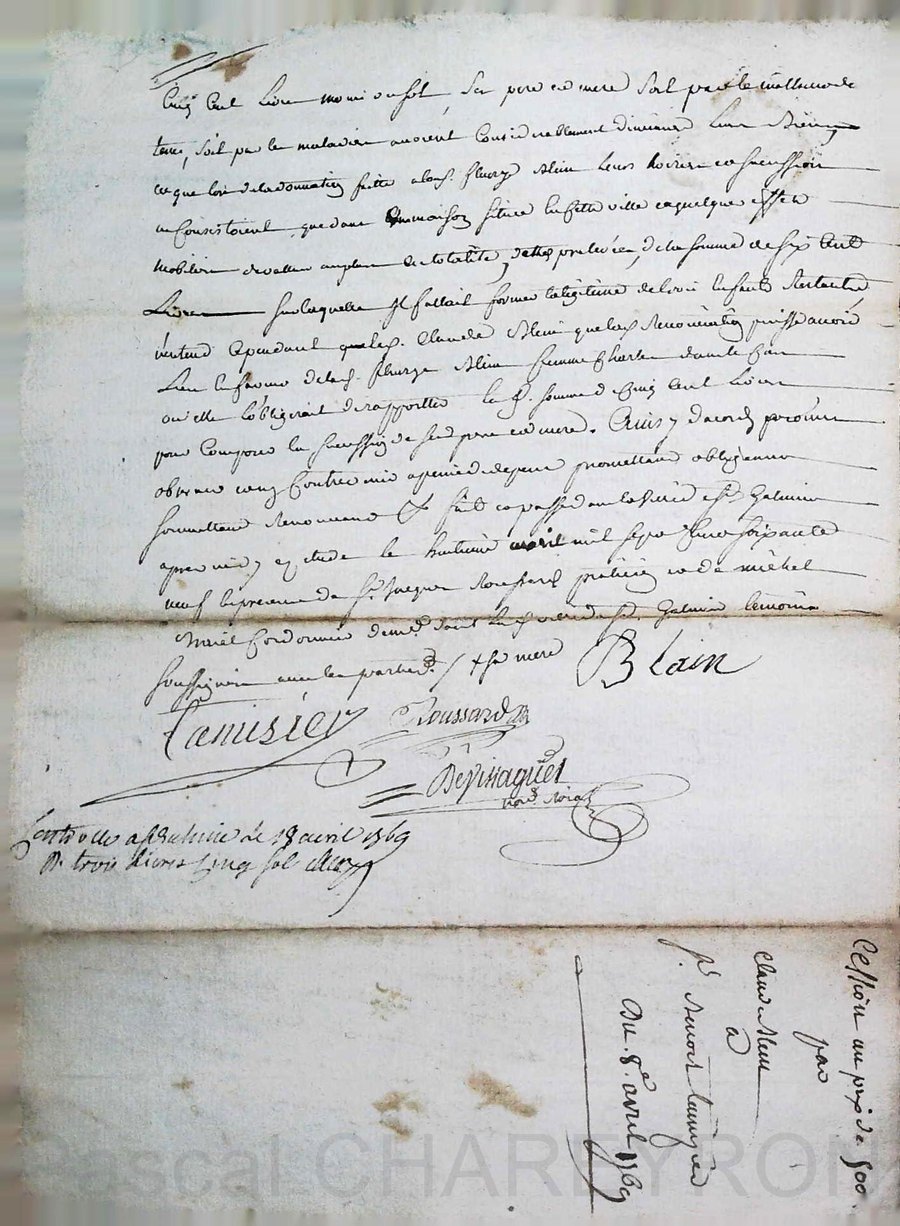 Cinq cent livres moins un sol, ses pere et mere soit par le malheur de
tems, soit par les maladies avoient considerablement diminués leurs biens
et que lors de la donnation faitte a la d. fleurye Blein leurs hoiries et succession
ne consistoient que dans une maison située en cette ville et quelques effets
mobiliers de valleur en plein de totalité, dettes prelevées, de la somme de six cent
Livres sur laquelle il fallait former la legitime de trois enfants restants
entend cependant que la d. Claude Blein que la d. renonciation puisse avoir
lieu en faveur de la d. fleurye Blein femme Charles dans le cas
ou elle l'obligerait de rapporter la d. somme de cinq cent livres
pour composer la succession de ses d. pere et mere. Ainsy d'accord
observer sans contrevenir a peine de depens promettant obligeant
soumettant renonceant &c fait et passé en la ville de St. Galmier
apres midy en etude le huitieme avril mil sept cent soixante
neuf en presence de Sr. Jacques Roussard praticien et de michel
cordonnier demt. dans la d. ville de St. Galmier temoins
soussignés avec les parties. / + sa mere
Blain
Camisier
Roussard
Devissaguet
not. Roial
Controllé a St Galmier le 18 avril 1769
R. trois livres cinq sol
Cession au prix de 500
par
Claude Blein
à
Sr. Benoit Camizier
Du 8e. avril 1769
Pascal CHAREYRON